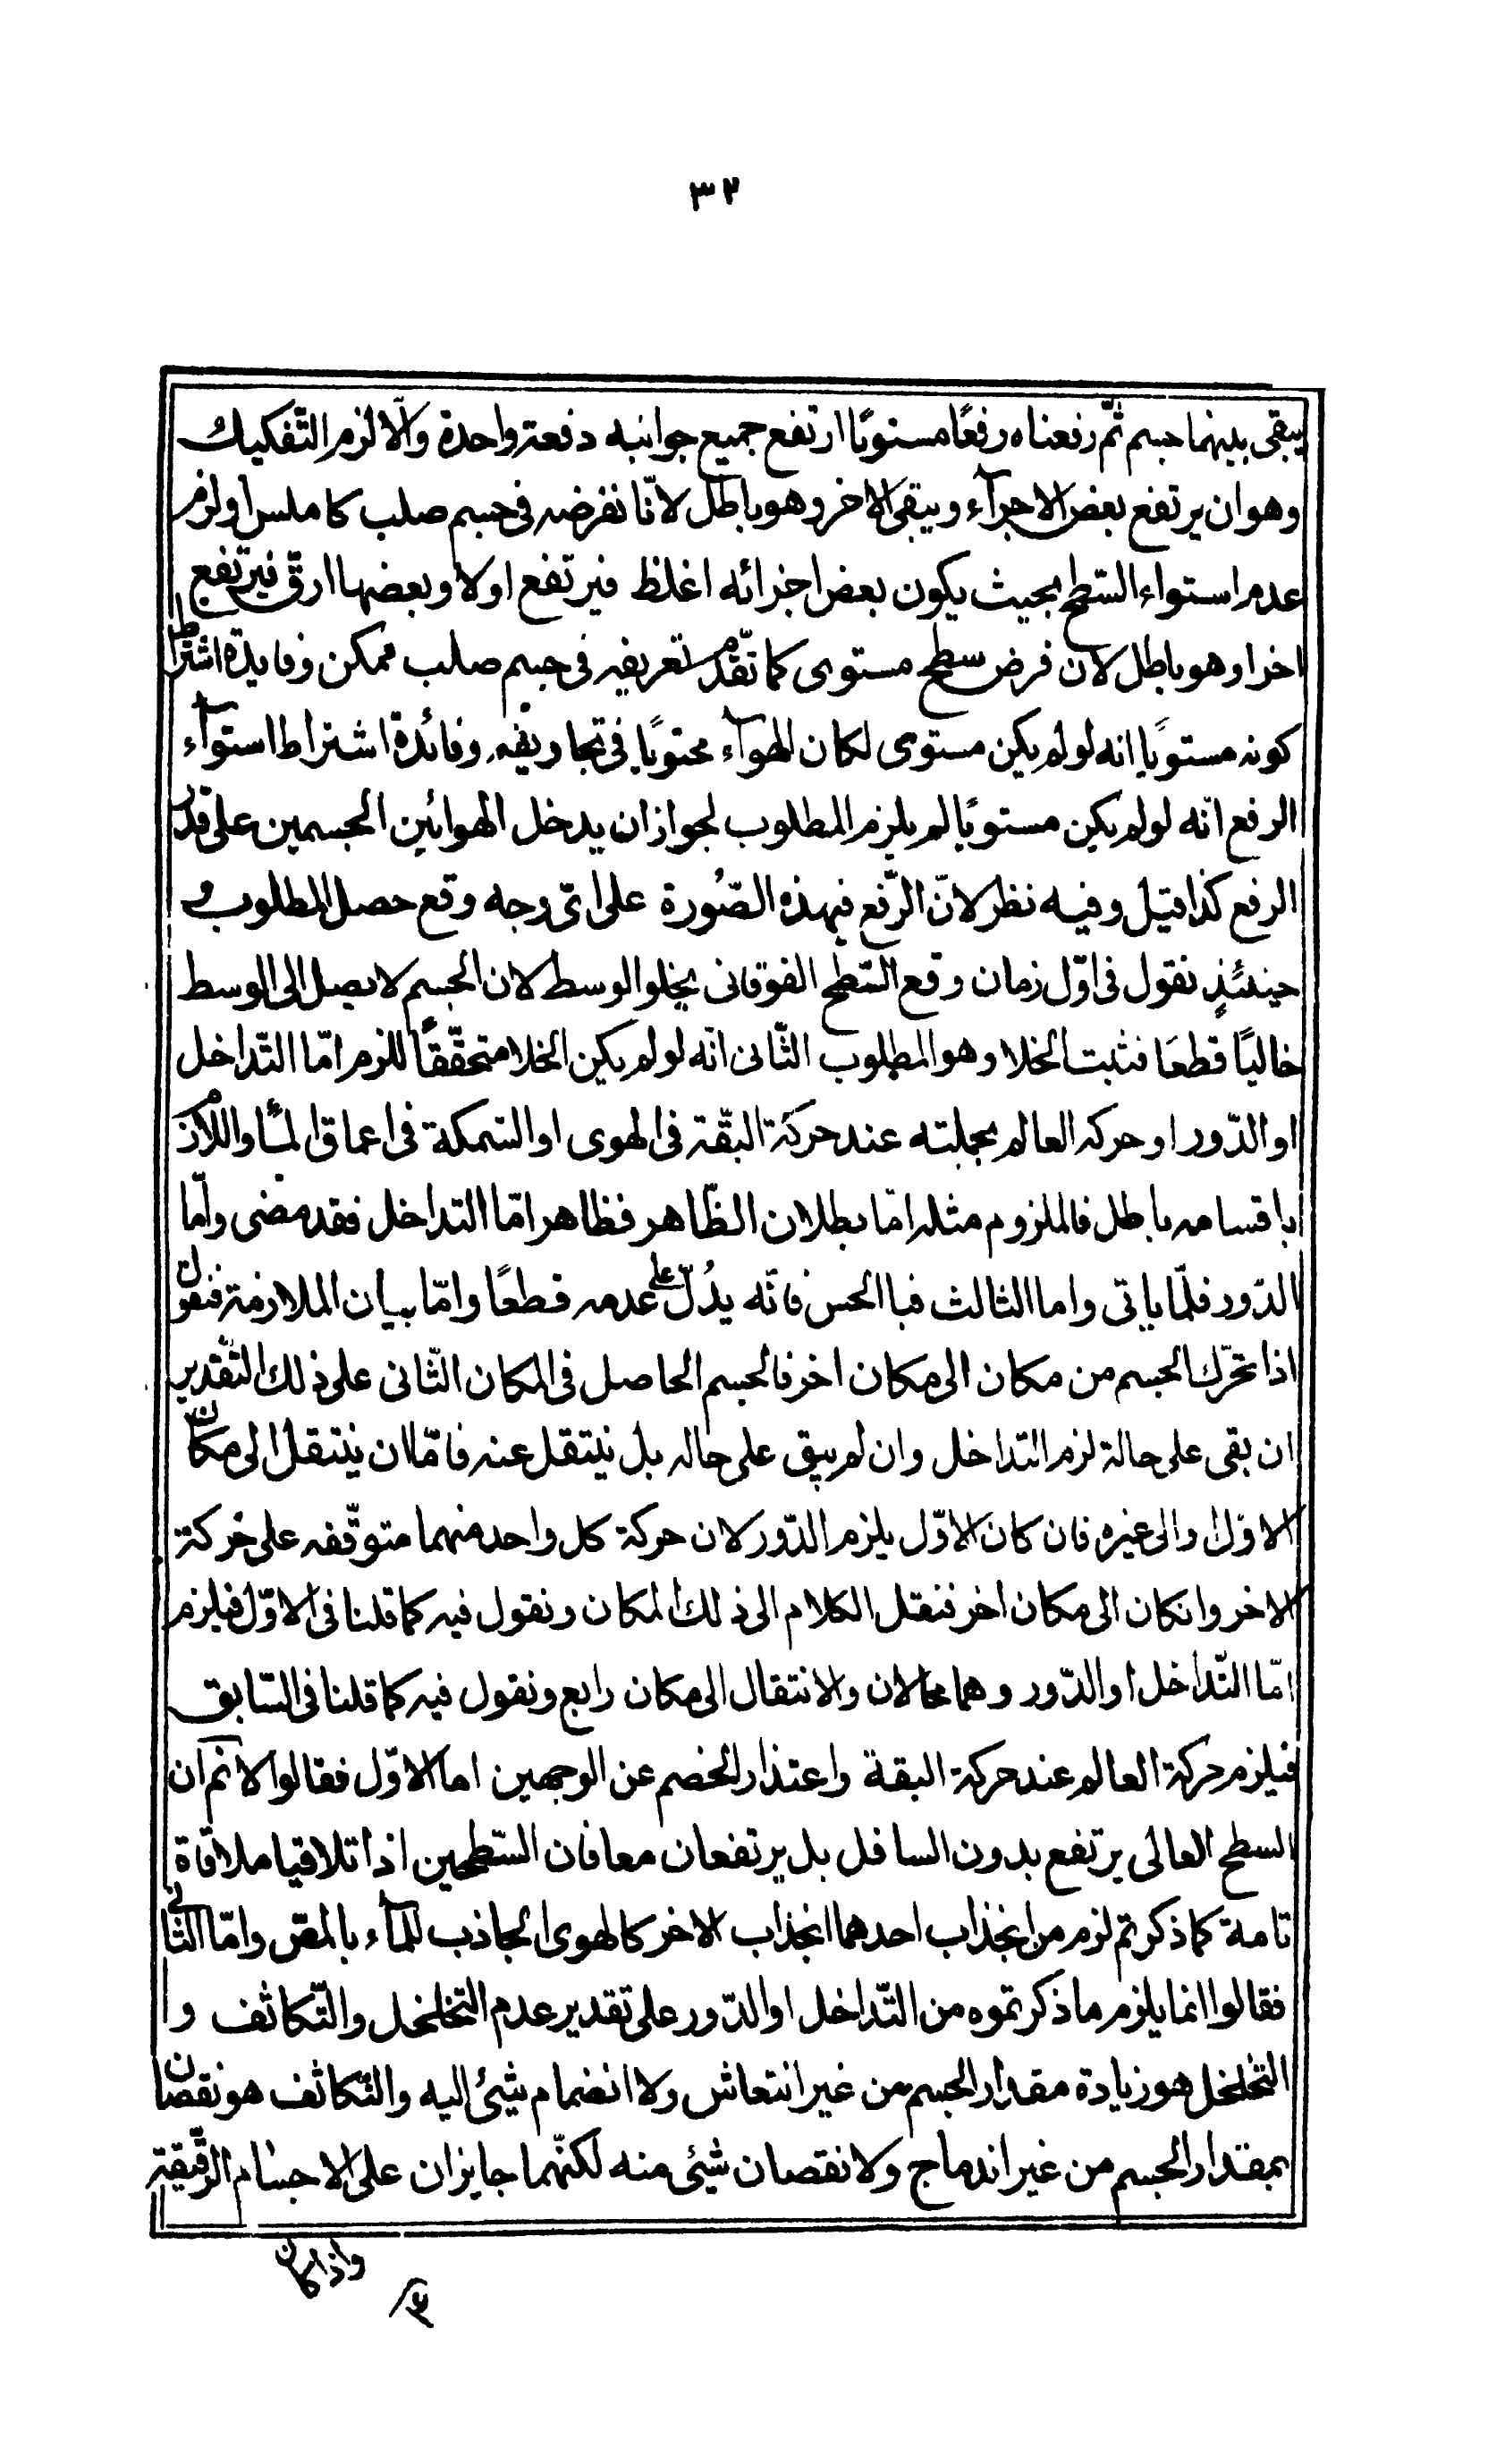 ٣٢
يبقى بينهما جسم ثمّ رفعناه رفعًا مستويًا ارتفع جميع جوانبه دفعة واحدة والّا لزم التّفكيك
وهو ان يرتفع بعض الاجزآء ويبقى الاخر وهو باطل لانّا نفرضه فى جسم صلب كاملس او لزم
عدم استواء السّطح بحيث يكون بعض اجزائه اغلظ فيرتفع اولا وبعضها ارقّ فيرتفع
اخرا وهو باطل لان فرض سطح مستوى كما تقدّم تعريفه فى جسم صلب ممكن وفايدة اشتراط
كونه مستويًا انه لو لم يكن مستوى لكان الهوآء محتويًا فى تجاويفه وفائدة اشتراط استوآء
الرفع انّه لو لم يكن مستويًا لم يلزم المطلوب لجواز ان يدخل الهوا بين الجسمين على قدر
الرفع كذا قيل وفيه نظر لانّ الرّفع فى هذه الصّورة على اىّ وجه وقع حصل المطلوب و
حينئذٍ نقول فى اوّل زمان وقع السّطح الفوقانى يخلو الوسط لان الجسم لا يصل الى الوسط
خاليًا قطعًا فثبت الخلا وهو المطلوب الثّانى انّه لو لم يكن الخلا متحقّقًا للزم امّا التّداخل
او الدّور او حركه العالم بجملته عند حركة البقّة فى الهوى او السّمكة فى اعماق المآء واللّازم
باقسامه باطل فالملزوم مثله امّا بطلان الظّاهر فظاهر امّا التداخل فقد مضى وامّا
الدّور فلمّا ياتى واما الثالث فبا الحس فانّه يدُلّ على عدمه قطعًا وامّا بيان الملازمة فنقول
اذا تحرّك الجسم من مكان الى مكان اخر فالجسم الحاصل فى المكان الثّانى على ذلك التّقدير
ان بقى على حالة لزم التداخل وان لم يبق على حاله بل ينتقل عنه فامّا ان ينتقل الى مكان
الاوّل او الى غيره فان كان الاوّل يلزم الدّور لان حركة كل واحد منهما متوقّفه على حركة
الاخر وان كان الى مكان اخر فننقل الكلام الى ذلك المكان ونقول فيه كما قلنا فى الاوّل فيلزم
امّا التّداخل او الدّور وهما محالان والانتقال الى مكان رابع ونقول فيه كما قلنا فى السّابق
فيلزم حركة العالم عند حركة البقة واعتذار الخصم عن الوجهين اما الاوّل فقالوا لا نم ان
السطح العالى يرتفع بدون السافل بل يرتفعان معا فان السّطحين اذا تلاقيا ملاقاة
تامة كما ذكرتم لزم من انجذاب احدهما انجذاب الاخر كالهوى الجاذب للمآء بالمصّ وامّا الثانى
فقالوا انما يلزم ما ذكرتموه من التّداخل او الدّور على تقدير عدم التخلخل والتّكاثف وا
التّخلخل هو زيادة مقدار الجسم من غير انتعاش ولا انضمام شيئ اليه والتّكاثف هو نقصان
بمقدار الجسم من غير اندماج ولا نقصان شيئ منه لكنّهما جايزان على الاجسام الرّقيقة
واذا كان